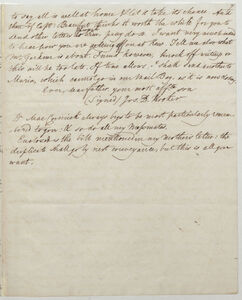 to say, all is well at home. I let it take its chance. And
then if Capt. Beaufort thinks it worth the while for you to
send other letters to him, pray do so. I want very much
to hear how you are getting on at Kew. Tell me also what
Mr. is about. heard off writing or
this will be too late. If time allows I shall send another to
Maria, which cannot go in our Mail Bag, as it is now
Ever, my father, your most affte. son
(Signed) Jos. D. Hooker
McCormick always begs to be most particularly remem-
bered to you & so do all my Messmates.
Enclosed is the bill mentioned in my mother's letter: the
duplicate shall go by next conveyance, but this is all you
want.